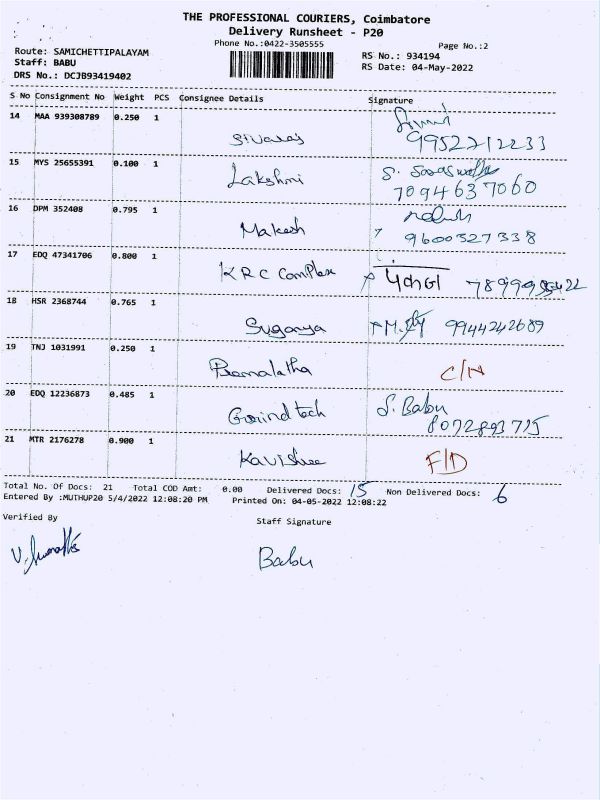 THE PROFESSIONAL COURIERS, Coimbatore
Delivery Runsheet - P20
Phone No.:0422-3505555
Page No.:2
Route: SAMICHETTIPALAYAM
Staff: BABU
DRS No.: DCJB93419402
RS No.: 934194
RS Date: 04-May-2022
S No Consignment No Weight PCS Consignee Details Signature
14 MAA 939308789 0.250 1
Sivaraj 9952212233
15 MYS 25655391 0.100 1
Lakshmi S. Saraswathi
7094637060
16 DPM 352408 0.795 1
Makesh 9600327338
17 EDQ 47341706 0.800 1
KRC Complex
18 HSR 2368744 0.765 1
Suganya 9944242689
19 TNJ 1031991 0.250 1
Premalatha C/N
20 EDQ 12236873 0.485 1
Govind tech S. Babu
8072893715
21 MTR 2176278 0.900 1
Kavishree F/D
Total No. Of Docs: 21 Total COD Amt: 0.00 Delivered Docs: 15 Non Delivered Docs: 6
Entered By :MUTHUP20 5/4/2022 12:08:20 PM Printed On: 04-05-2022 12:08:22
Verified By
Staff Signature
Babu